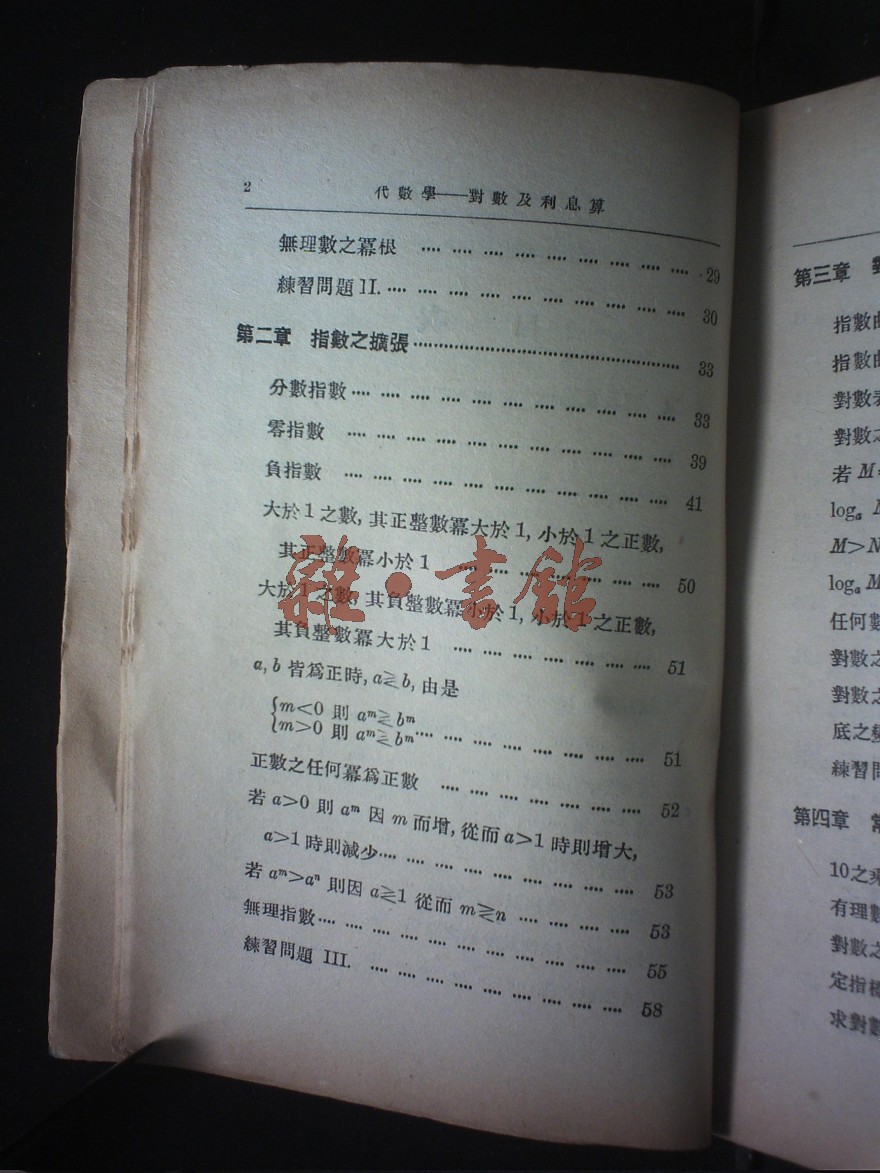 2
代數學——對數及利息算
無理數之冪根 .... .... .... .... .... .... .... .... .... 29
練習問題 II. .... .... .... .... .... .... .... .... .... 30
第二章 指數之擴張 .................................... 33
分數指數 .... .... .... .... .... .... .... .... .... .... 33
零指數 .... .... .... .... .... .... .... .... .... .... 39
負指數 .... .... .... .... .... .... .... .... .... .... 41
大於 1 之數, 其正整數冪大於 1, 小於 1 之正數,
其正整數冪小於 1 .... .... .... .... .... .... .... 50
大於 1 之數, 其負整數冪小於 1, 小於 1 之正數,
其負整數冪大於 1 .... .... .... .... .... .... .... 51
a, b 皆爲正時, a≷b, 由是
{m<0 則 aᵐ≷bᵐ
{m>0 則 aᵐ≷bᵐ .... .... .... .... .... .... .... .... 51
正數之任何冪爲正數 .... .... .... .... .... .... .... 52
若 a>0 則 aᵐ 因 m 而增, 從而 a>1 時則增大,
a>1 時則減少 .... .... .... .... .... .... .... .... 53
若 aᵐ>aⁿ 則因 a≷1 從而 m≷n .... .... .... .... 53
無理指數 .... .... .... .... .... .... .... .... .... 55
練習問題 III. .... .... .... .... .... .... .... .... 58
雜·書館
第三章
指數
指數
對數
對數之
若 M
logₐ
M>N
logₐ M
任何數
對數之
對數之
底之
練習
第四章
10之
有理數
對數之
定指
求對數